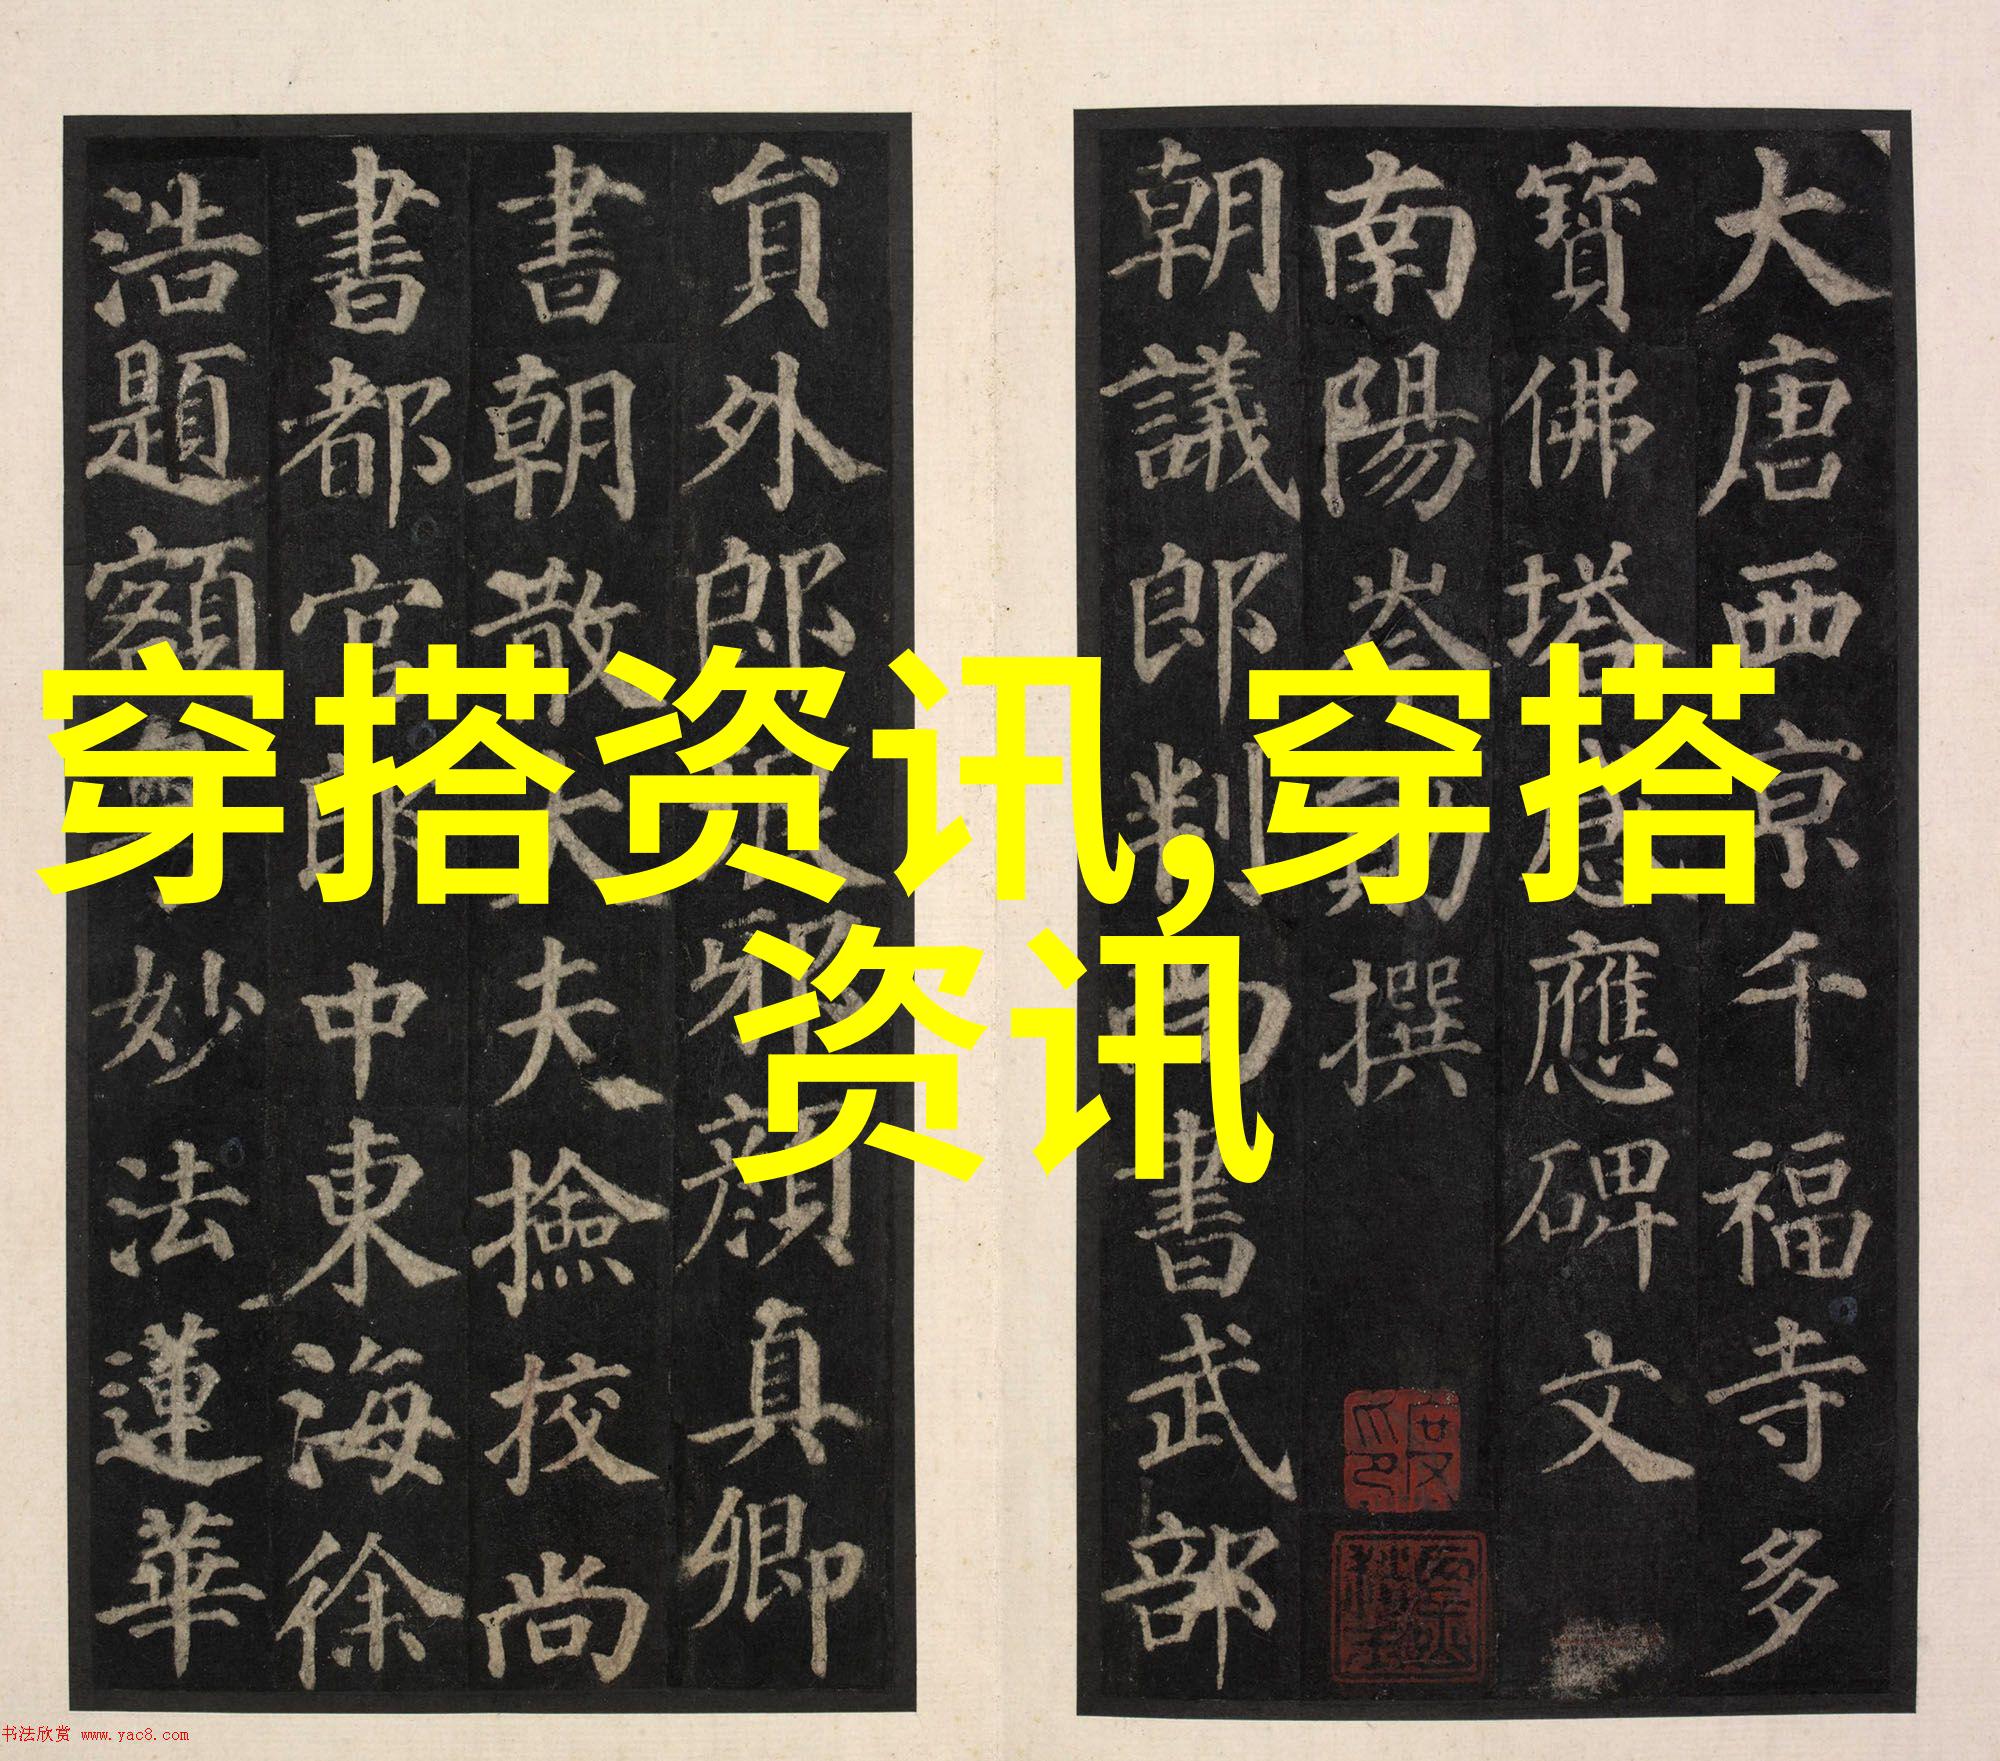 穿搭资讯,穿搭
资讯
大唐西京千福寺多
寶佛塔感應碑文
南陽岑勛撰
朝議郎判尚書武部
員外郎琅邪顏真卿
書朝散大夫撿挍尚
書都官郎中東海徐
浩題額粵妙法蓮華
书法欣赏 www.yac8.com